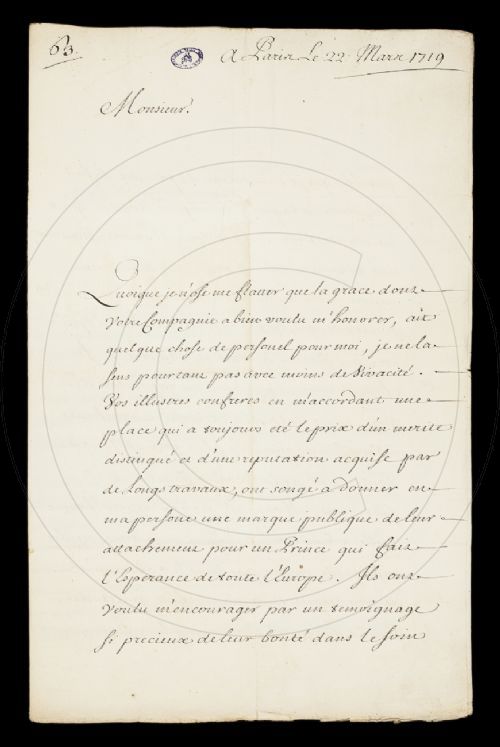 63.
A Paris Le 22 Mars 1719
Monsieur.
Quoique je n'ose me flatter que la grace dont
votre Compagnie a bien voulu m'honorer, ait
quelque chose de personel pour moi, je ne la
sens pourtant pas avec moins de Vivacité.
Vos illustres confreres en m'accordant une
place qui a toujours eté le prix d'un merite
distingué et d'une reputation acquise par
de Longs travaux, ont songé a donner en
ma persone une marque publique de leur
attachement pour un Prince qui fait
l'Esperance de toute l'Europe. Ils ont
voulu m'encourager par un temoignage
si precieux de leur bonté dans le soin